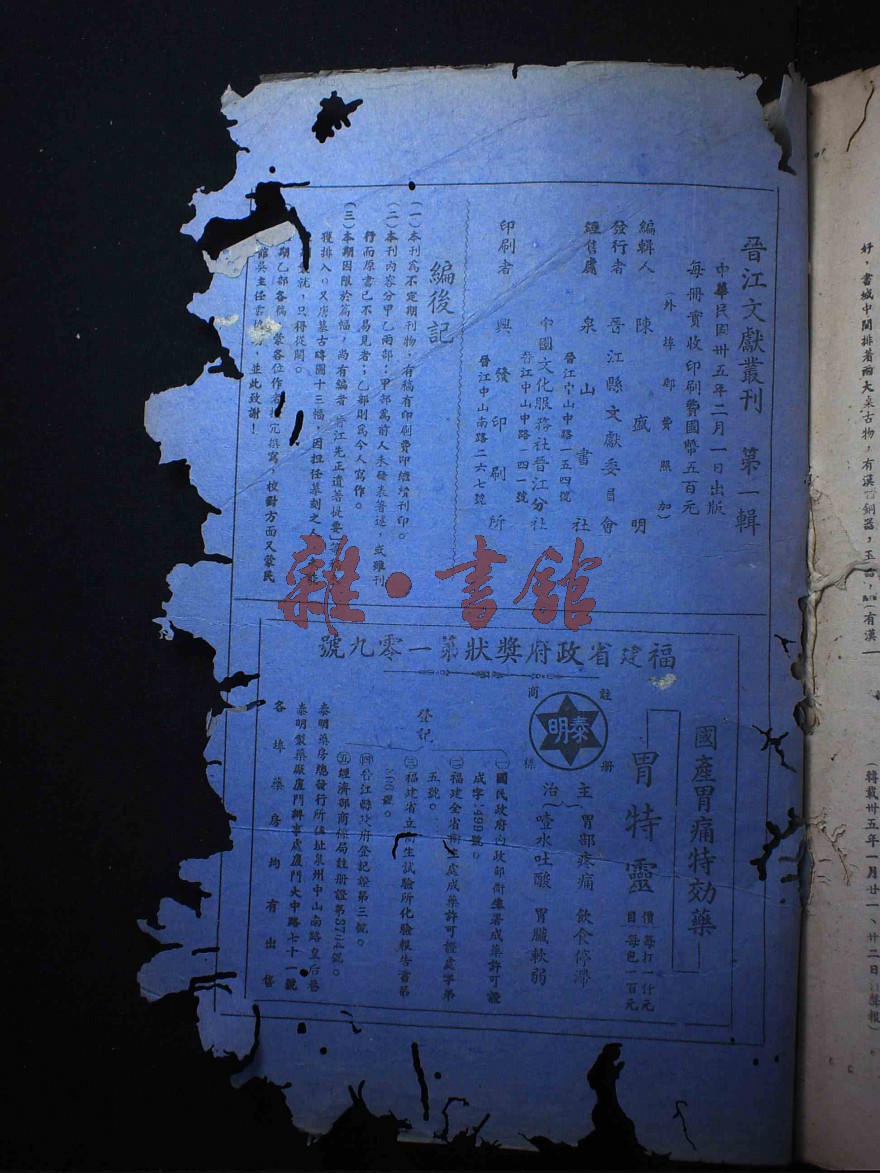 晉江文獻叢刊　第一輯
中華民國卅五年二月一日出版
每冊實收印刷費國幣五百元
（外埠郵費照加）
編輯人　陳盛明
發行者　晉江縣文獻委員會
經售處　泉山書社
晉江中山中路一五四號
中國文化服務社晉江分社
晉江中山中路一四一號
印刷者　興發印刷所
晉江中山南路二六七號
編後記
（一）本刊為不定期刊物，有稿有印刷費即繼續刊印。
（二）本刊內容分甲乙兩部：甲部為前人未發表著述，或雖刊
行而原書已不易見者；乙部則為今人寫作。
（三）本期因限於篇幅，尚有編者「晉江先正遺著提要」等
獲排入。又唐墓古磚圖十三幅，因担任摹刻之
就，只得從闕。
期乙部各稿，蒙各位作者撰寫，校對方面又蒙民
館吳主任，並此致謝！
福建省政府獎狀第一零九號
國產胃痛特効藥
胃特靈
價　每打一仟元
目　每包一百元
註册商標
泰明
主治
胃部疼痛　飲食停滯
噎水吐酸　胃臟軟弱
登記
㈠國民政府內政部衛生署成藥許可證
成字1499號。
㈡福建全省衛生處成藥許可證處字第
五號。
㈢福建省立衛生試驗所化驗報告書第
號。
㈣晉江縣政府登記證第三號。
㈤經濟部商標局註册證第號。
泰明藥房總發行所住址泉州中山南路皇后巷
泰明製藥廠廈門辦事處廈門大中路七十一號
各埠藥房均有出售
雜·書館
好，書城中間排着兩大桌古物，有漢銅器，玉器，（有漢一
（轉載卅五年一月廿一、廿二日報）